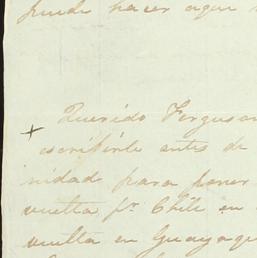 puede hacer aqui
Querido Ferguson
+ escribirle antes de
nidad para poner
vuelta pr. Chile en
vuelta en Guayaqu